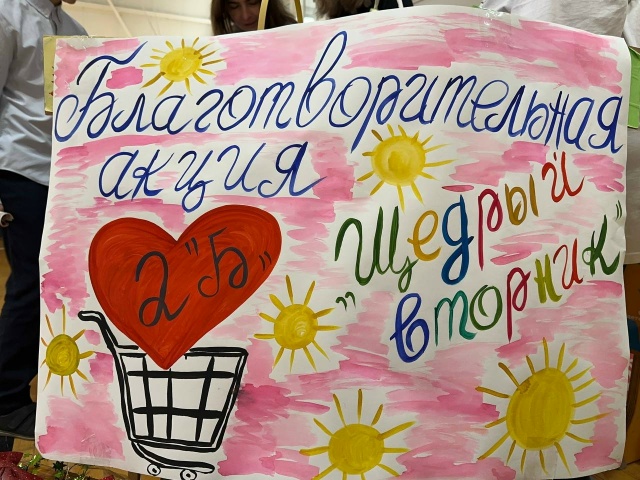 Благотворительная
акция
2 "Б"
"Щедрый
вторник"